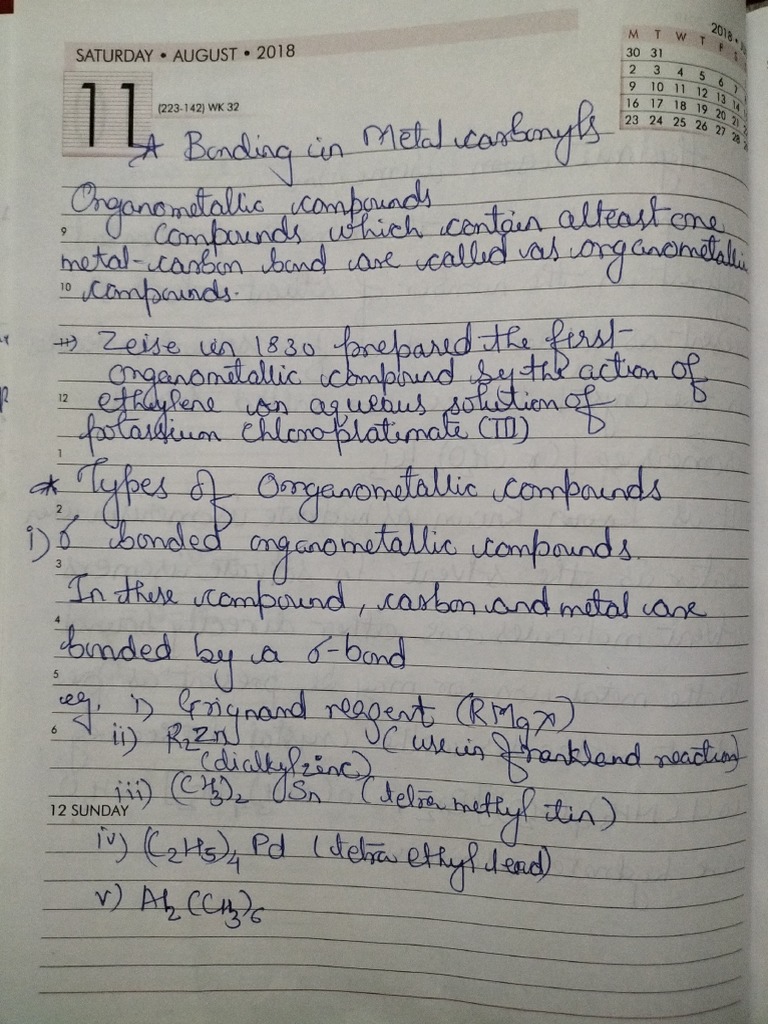 SATURDAY • AUGUST • 2018
2018 •
M T W T F S
30 31
2 3 4 5 6 7
9 10 11 12 13 14
16 17 18 19 20 21
23 24 25 26 27 28
11 (223-142) WK 32
* Bonding in Metal carbonyls
Organometallic compounds
9 compounds which contain alteast one
metal-carbon bond are called as organometallic
10 compounds.
→ Zeise in 1830 prepared the first
organometallic compound by the action of
12 ethylene on aqueous solution of
potassium chloroplatinate (III)
1
* Types of Organometallic compounds
2
i) σ bonded organometallic compounds.
3
In these compound, carbon and metal are
4
bonded by a σ-bond
5
eg. i) Grignard reagent (RMgx)
6 ii) R2Zn (use in frankland reaction)
(dialkylzinc)
iii) (CH3)2 Sn (tetra methyl tin)
12 SUNDAY
iv) (C2H5)4 Pd (tetra ethyl lead)
v) Al2(CH3)6